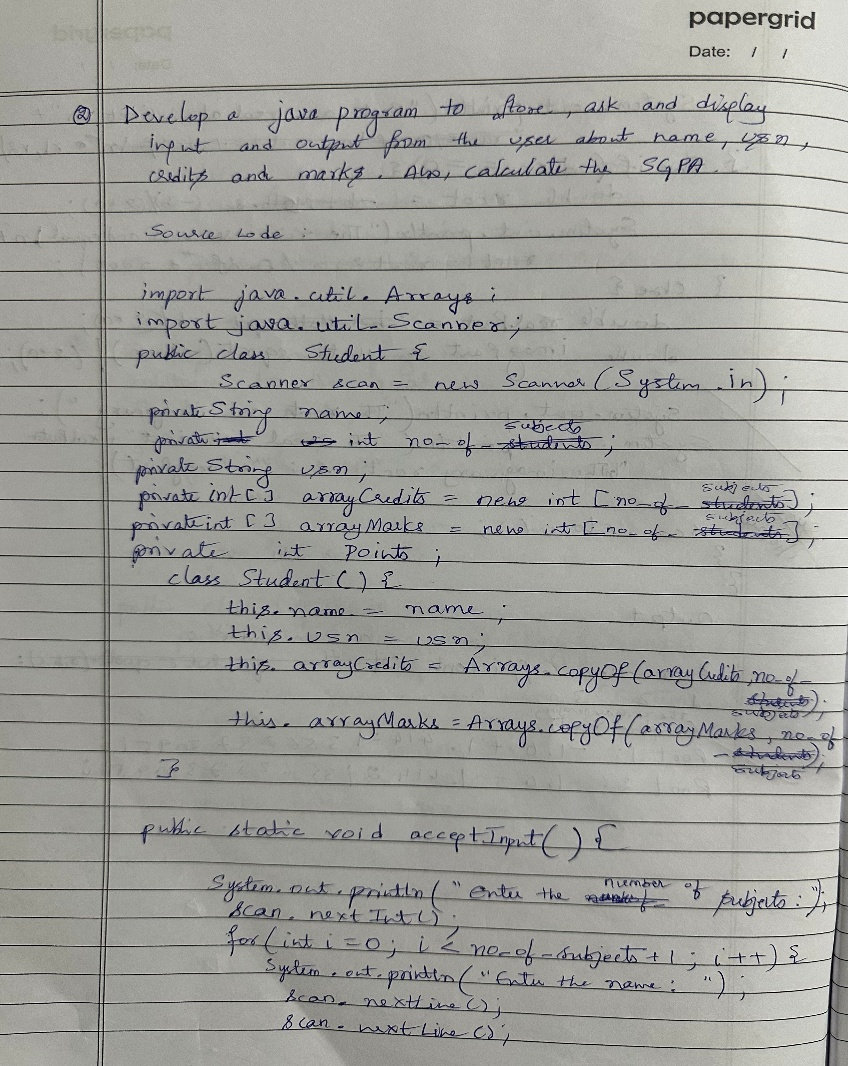 papergrid
Date: / /
② Develop a java program to store, ask and display
input and output from the user about name, usn,
credits and marks. Also, calculate the SGPA.
Source code :
import java.util.Arrays;
import java.util.Scanner;
public class Student {
Scanner scan = new Scanner(System.in);
private String name;
private int no-of-subjects;
private String usn;
private int[] arrayCredits = new int [no-of-subjects];
private int [] arrayMarks = new int [no-of-subjects];
private int Points;
class Student() {
this.name = name;
this.usn = usn;
this.arrayCredits = Arrays.copyOf(arrayCredits, no-of-
subjects);
this.arrayMarks = Arrays.copyOf(arrayMarks, no-of
-subjects);
}
public static void acceptInput() {
System.out.println("enter the number of subjects:");
scan.nextInt();
for(int i=0; i< no-of-subjects+1; i++) {
System.out.println("Enter the name: ");
scan.nextLine();
scan.nextLine();